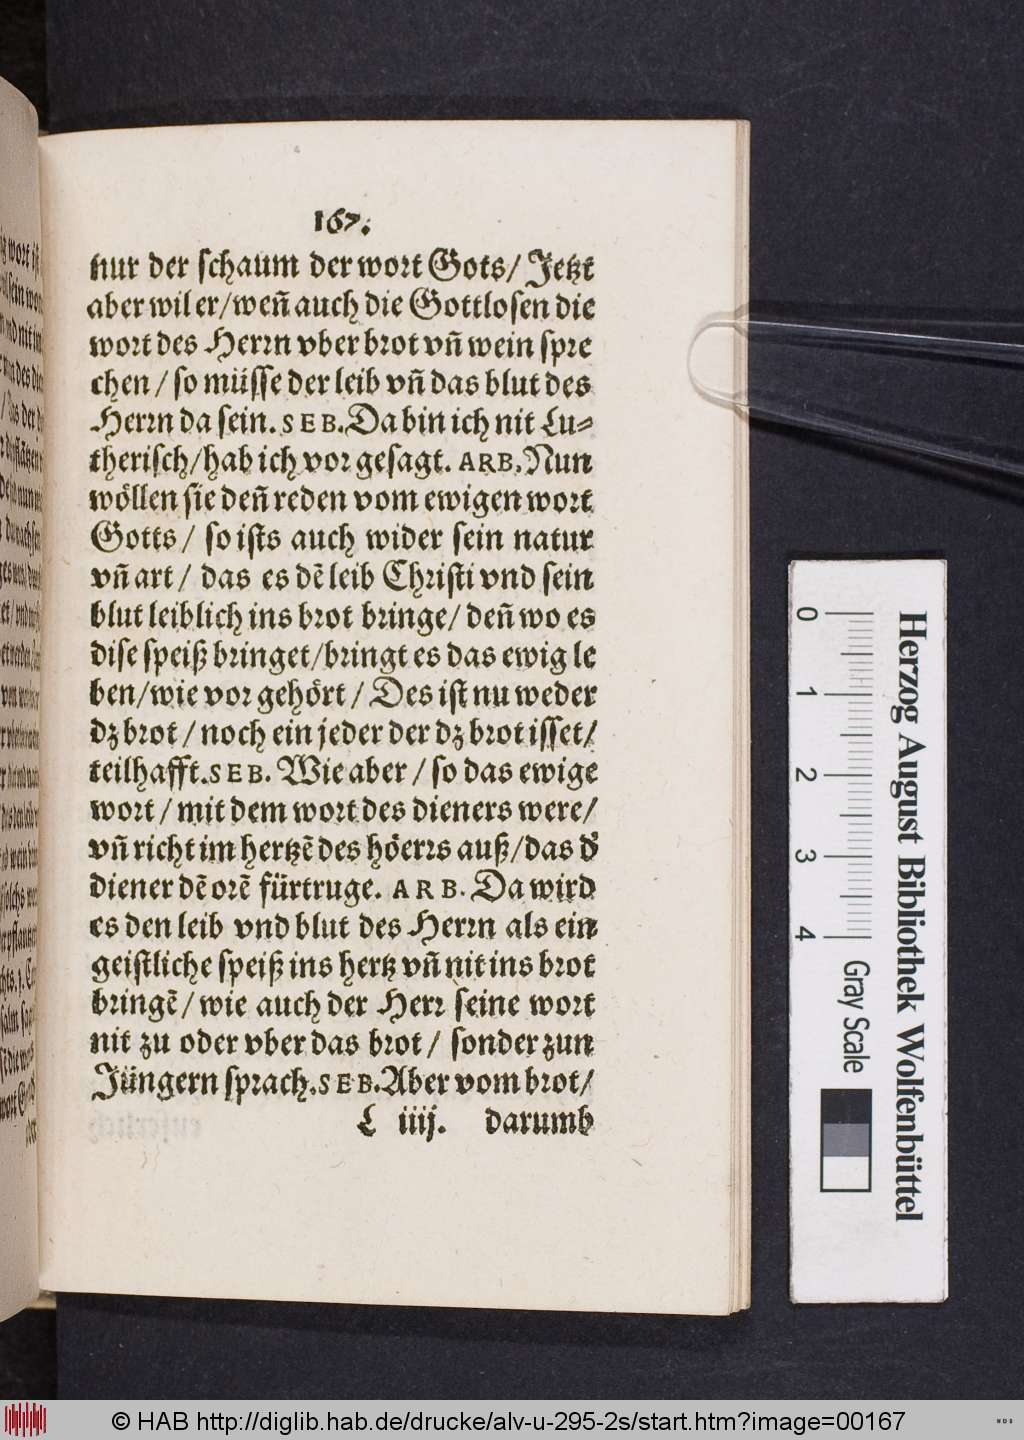 167.
nur der schaum der wort Gots/ Jetzt
aber wil er/weñ auch die Gottlosen die
wort des Herrn vber brot vñ wein spre
chen / so müsse der leib vñ das blut des
Herrn da sein. SEB. Da bin ich nit Lu-
therisch/hab ich vor gesagt. ARB. Nun
wöllen sie deñ reden vom ewigen wort
Gotts/ so ists auch wider sein natur
vñ art/ das es dē leib Christi vnd sein
blut leiblich ins brot bringe/ deñ wo es
dise speiß bringet/bringt es das ewig le
ben/wie vor gehört / Des ist nu weder
dz brot / noch ein jeder der dz brot isset/
teilhafft. SEB. Wie aber / so das ewige
wort / mit dem wort des dieners were/
vñ richt im hertzē des höerrs auß/das d'
diener dē orē fürtruge. ARB. Da wird
es den leib vnd blut des Herrn als ein
geistliche speiß ins hertz vñ nit ins brot
bringē/ wie auch der Herr seine wort
nit zu oder vber das brot/ sonder zun
Jüngern sprach. SEB. Aber vom brot/
L iiij. darumb
Herzog August Bibliothek Wolfenbüttel
0 1 2 3 4 Gray Scale
© HAB http://diglib.hab.de/drucke/alv-u-295-2s/start.htm?image=00167